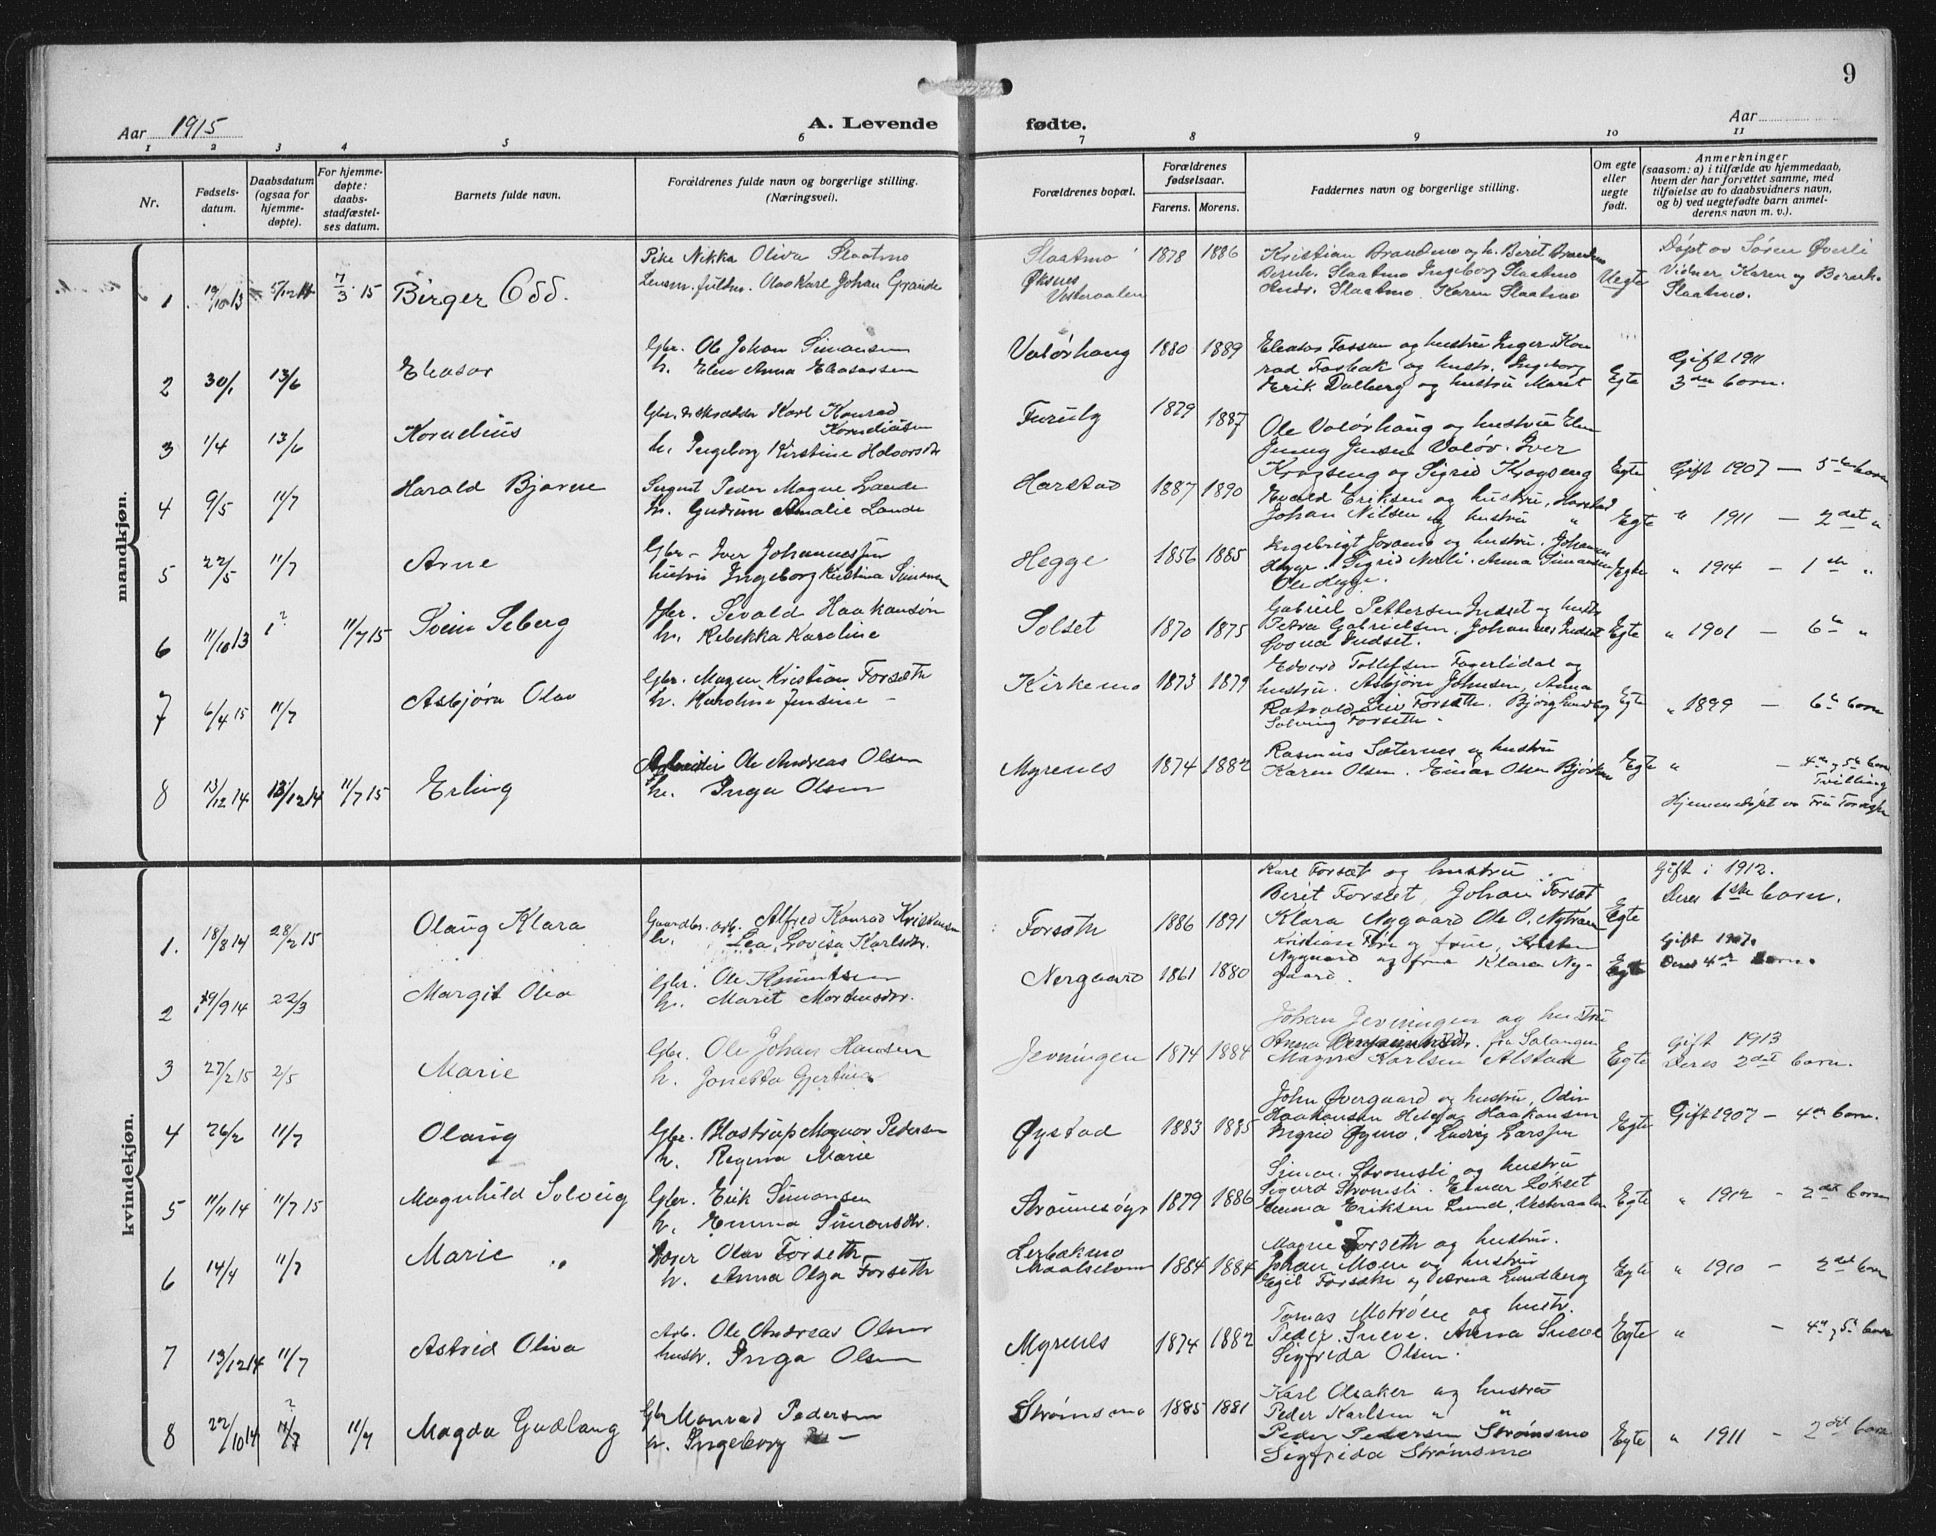 9
Aar 1915
A. Levende fødte.
Aar
1 2 3 4 5 6 7 8 9 10 11
Nr.
Fødsels-
datum.
Daabsdatum
(ogsaa for
hjemme-
døpte).
For hjemme-
døpte:
daabs-
stadfæstel-
ses datum.
Barnets fulde navn.
Forældrenes fulde navn og borgerlige stilling.
(Næringsvei).
Forældrenes bopæl.
Forældrenes
fødselsaar.
Farens. Morens.
Faddernes navn og borgerlige stilling.
Om egte
eller
uegte
født.
Anmerkninger
(saasom: a) i tilfælde av hjemmedaab,
hvem der har forrettet samme, med
tilføielse av to daabsvidners navn,
og b) ved uegtefødte barn anmel-
derens navn m. v.).
mandkjøn.
1 19/10 13 5/12 14 7/3 15 Birger Odd.
Pike Nikka Oliva Slaatmo
Lensm. fuldm. Olaa Karl Johan Grande
Slaatmo
Øksnes
Vesteraalen
1878 1886
Kristian Brandmo og h. Berit Brandmo
Bernh. Slaatmo Ingeborg Slaatmo
Hndr. Slaatmo. Karen Slaatmo
Uegte
Døpt av Søren Øverli
Vidner Karen og Bernh.
Slaatmo.
2 30/1 13/6 Eleasar
Gbr. Ole Johan Simonsen
h. Elen Anna Eleasarsen
Valørhaug 1880 1889
Eleasar Fossan og hustru Inger Kon
rad Fosbak og hustr. Ingeborg
Erik Dalberg og hustru Marit
Egte
Gift 1911
3die barn.
3 1/4 13/6 Kornelius
Gbr. og skrædder Karl Konrad
Korneliusen
h. Ingeborg Kirstine Halvorsdtr
Furuly 1879 1887
Ole Valørhaug og hustru Elen
Jenny Jensen Valør. Iver
Krogseng og Sigrid Krogseng
Egte Gift 1907 — 5te barn
4 9/5 11/7 Harald Bjarne
Sergent Peder Magne Lande
h. Gudrun Amalie Lande
Harstad 1887 1890
Evald Eriksen og hustru, Harstad
Johan Nilsen og hustru "
Egte " 1911 — 2det "
5 22/5 11/7 Arne
Gbr. Iver Johannessen
hustru Ingeborg Kristina Simonsen
Hegge 1856 1885
Ingebrigt Joramo og hustru. Johannes
Hegge. Sigrid Nerli. Anna Simonsen
Ole Hegge.
Egte " 1914 — 1ste "
6 11/10 13 ? 11/7 15 Svein Seberg
Gbr. Sevald Haakonsøn
h. Rebekka Karoline
Solset 1870 1875
Gabriel Pettersen Indset og hustr.
Petra Gabrielsen. Johannes Indset
Svona Indset.
Egte " 1901 — 6te "
7 6/4 15 11/7 Asbjørn Olav
Gbr. Magnus Kristian Forseth
h. Karoline Jensine —
Kirkemo 1873 1879
Edvard Tollefsen Fagerlidal og
hustru. Asbjørn Johnsen, Anna
Rotvold Liv Forseth. Bjørg Lundberg
Solveig Forseth.
Egte " 1899 — 6te barn
8 13/12 14 13/12 14 11/7 15 Erling
Arbeider Ole Andreas Olsen
h. Inga Olsen
Myrenes 1874 1882
Rasmus Sæternes og hustru
Karen Olsen. Einar Olsen Bjørken
Egte " — 4de og 5te barn
Tvilling
Hjemmedøpt av Fru
kvindekjøn.
1. 18/8 14 28/2 15 Olaug Klara
Gaardbr. arb. Alfred Konrad Kristiansen
h. Lea Lovisa Karlsdtr.
Forseth 1886 1891
Karl Forsæt og hustru
Berit Forsæt, Johan Forsæt
Klara Nygaard Ole O. Nytrøen
Egte
Gift i 1912.
Deres 1ste barn.
2 19/9 14 22/3 Margit Olea
Gbr. Ole Knuntsen
h. Marit Mortensdtr.
Nergaard 1861 1880
Kristian Fire og frue, Kristen
Nygaard og frue Klara Ny-
gaard.
Egte
Gift 1907.
Deres 4de barn.
3 27/2 15 2/5 Marie
Gbr. Ole Johan Hansen
h. Jonetta Gjertina
Jevningen 1874 1884
Johan Jevningen og hustru
Anna Benjaminsdtr. fra Salangen
Magna Karlsen Alstad
Egte
Gift 1913
Deres 2det barn.
4 26/2 11/7 Olaug
Gbr. Hastrup Magnor Pedersen
h. Regina Marie
Øystad 1883 1885
John Øvergaard og hustru, Odin
Haakonsen Helga Haakonsen
Ingrid Øymo. Ludvig Larssen
Egte Gift 1907 — 4de barn.
5 11/11 14 11/7 15 Magnhild Solveig
Gbr. Erik Simonsen
h. Emma Simonsdtr.
Strømesøyr 1879 1886
Simon Strømsli og hustru
Sigurd Strømsli. Einar Løkset
Emma Eriksen Lund, Vesteraalen
Egte " 1912 — 2det barn
6 14/4 11/7 Marie "
Olav Forseth
h. Anna Olga Forseth
Lerbakmo
Maalselven
1884 1884
Magne Forseth og hustru.
Johan Moen og hustru
Egil Forseth og Verna Lundberg
Egte " 1910 — 2det barn
7 13/12 14 11/7 Astrid Oliva
Arb. Ole Andreas Olsen
hustr. Inga Olsen
Myrenes 1874 1882
Tomas Motrøen og hustr.
Peder Sneve. Anna Sneve
Sigfrida Olsen.
Egte " — 4de og 5te barn
8 22/10 14 ? 11/7 11/7 Magda Gudlaug
Gbr Monrad Pedersen
h. Ingeborg —
Strømsmo 1885 1881
Karl Olsaker og hustru
Peder Karlsen " "
Peder Pedersen Strømsmo
Sigfrida Strømsmo
Egte " 1911 — 2det barn